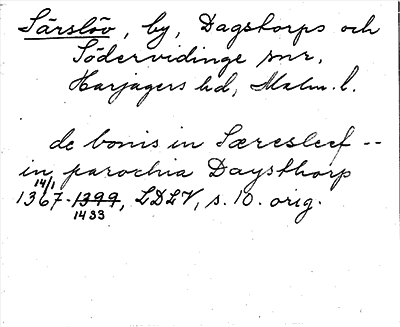 Särslöv, by, Dagstorps och
Södervidinge snr.
Harjagers hd, Malm. l.
de bonis in Særesleef --
in parochia Daysthorp
14/1
1367-1399, LDLV, s. 10. orig.
1433